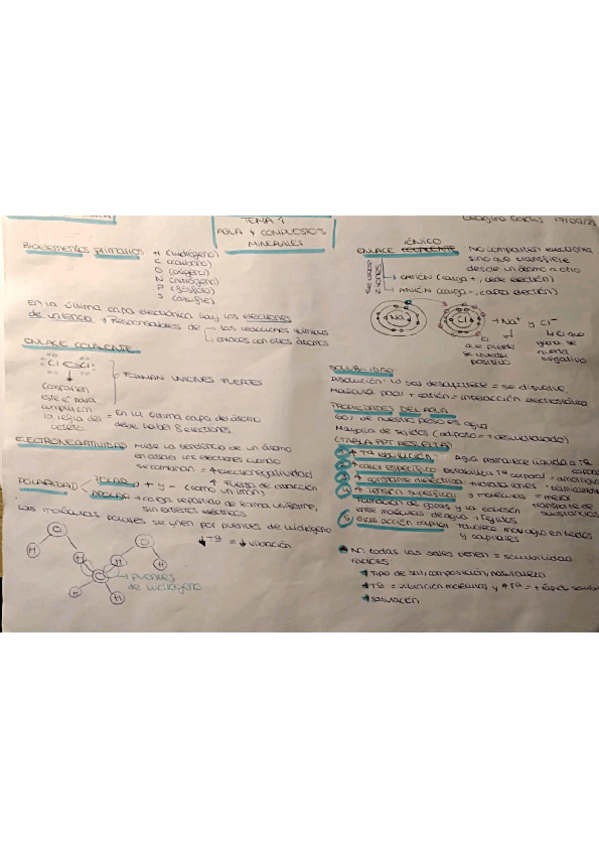 TEMA 1
AGUA Y COMPUESTOS
MINERALES
17/09/23
Bioelementos primarios
H (hidrógeno)
C (carbono)
O (oxígeno)
N (nitrógeno)
P (fósforo)
S (azufre)
En la última capa electrónica hay los electrones
de valencia → Responsables de
las reacciones químicas
enlaces con otros átomos
ENLACE COVALENTE
Cl Cl
FORMAN UNIONES FUERTES
comparten
este e⁻ para
cumplir con
la regla del
octeto
= En la última capa del átomo
debe haber 8 electrones.
ELECTRONEGATIVIDAD Mide la tendencia de un átomo
en atraer los electrones cuando
se combinan = + electronegatividad
↑ fuerza de atracción
POLARIDAD
POLAR → + y - (como un imán)
APOLAR → carga repartida de forma uniforme,
sin extremos eléctricos.
Las moléculas polares se unen por puentes de hidrógeno
↓ Tª = ↓ vibración
O
H
H
O
H
H
C
H
H
→ puentes
de hidrógeno
IÓNICO
ENLACE COVALENTE : No comparten electrones
sino que transfiere
desde un átomo a otro
CATIÓN (carga +, cede electrón)
ANIÓN (carga -, capta electrón)
Na
Cl
→ Na⁺ y Cl⁻
El
que pierde
se queda
positivo
El que
gana se
queda
negativo
SOLUBILIDAD
Disolución: la sal desaparece = se disuelve
Molécula polar + catión = interacción electrostática
PROPIEDADES DEL AGUA
60% de nuestro peso es agua
Mayoría de tejidos (adiposo = + deshidratado)
(TABLA PPT RESALTA)
1 ↑ Tª ebullición Agua permanece líquida a Tª
2 ↑ calor específico Estabiliza Tª corporal
3 ↑ constante dieléctrica
4 ↑ tensión superficial y moléculas = mejor
formación de gotas y la cohesión
entre moléculas de agua y tejidos
transporte de
substancias
5 Gran acción capilar Favorece mov agua en tejidos
y capilares
No todas las sales tienen = solubilidad
factores
Tipo de sal, composición, naturaleza
↑ Tª = ↑ vibración moléculas y ↑ Tª = + rápido
saturación